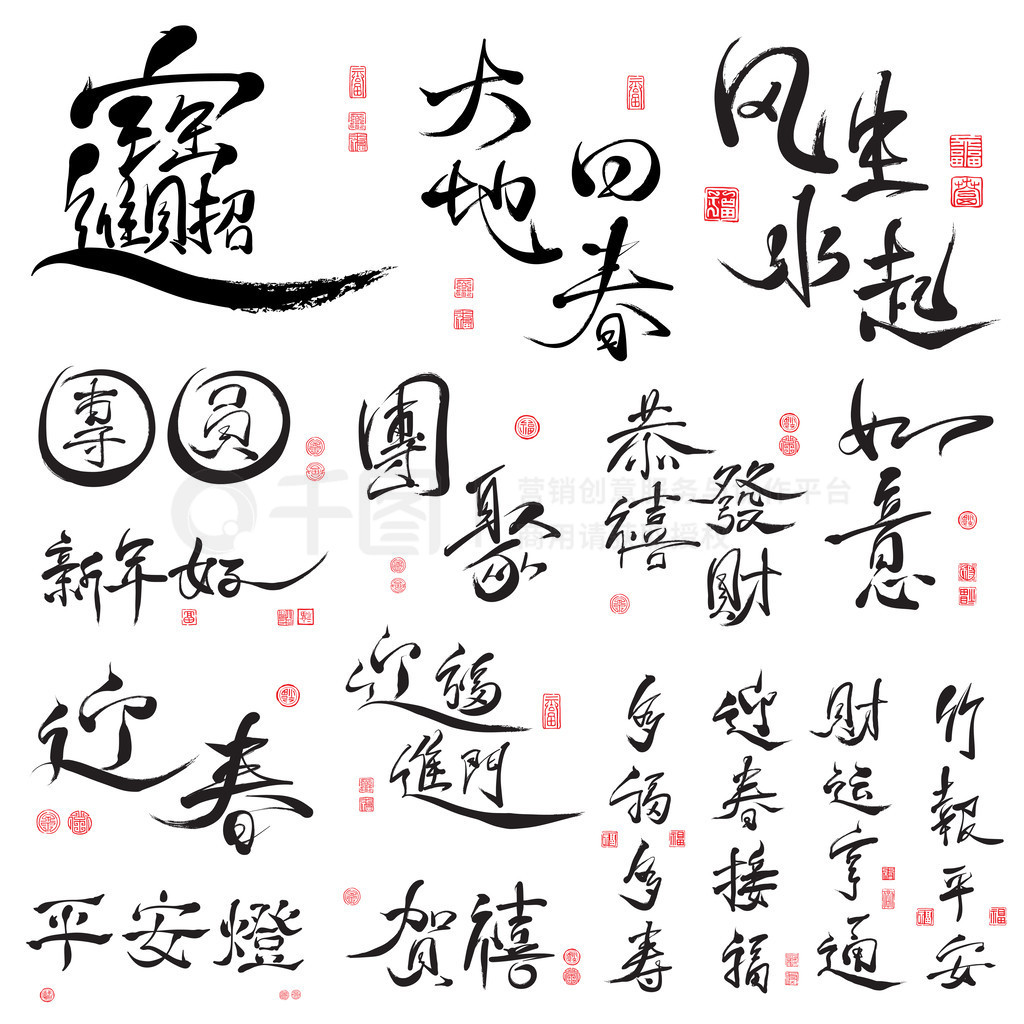 招財進寶
大地回春
风生水起
專員
團聚
恭禧發財
如意
新年好
迎春
迎福進門
多福多寿
迎春接福
財运亨通
竹報平安
平安燈
贺禧
千图
营销创意服务与协作平台
商用请获取授权